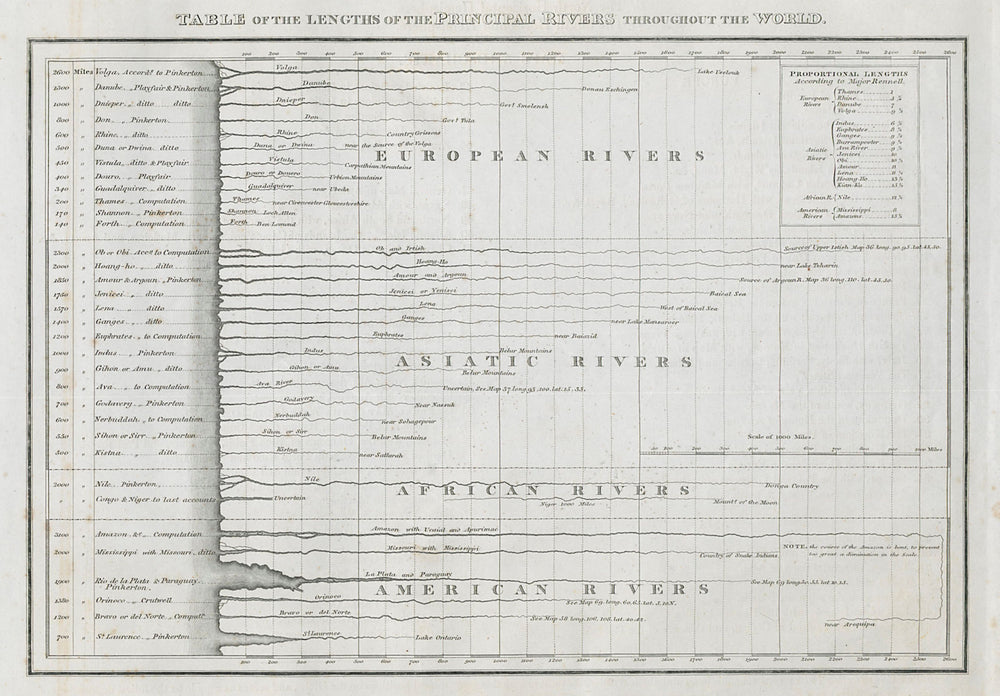 TABLE OF THE LENGTHS OF THE PRINCIPAL RIVERS THROUGHOUT THE WORLD.
100 200 300 400 500 600 700 800 900 1000 1100 1200 1300 1400 1500 1600 1700 1800 1900 2000 2100 2200 2300 2400 2500 2600
2600 Miles Volga, Accordg. to Pinkerton Volga
1300 „ Danube „ Playfair & Pinkerton Danube Donau Eschingen
1000 „ Dnieper „ ditto ditto Dnieper Govt. Smolensk
800 „ Don „ Pinkerton Don Govt. Tula
600 „ Rhine „ ditto Rhine Country Grisons
500 „ Duna or Dwina ditto Duna or Dwina near the Source of the Volga
450 „ Vistula „ ditto & Playfair Vistula Carpathian Mountains
400 „ Douro „ Playfair Douro or Douero Urbion Mountains
340 „ Guadalquiver „ ditto Guadalquiver near Ubeda
200 „ Thames „ Computation Thames near Cirencester Gloucestershire
170 „ Shannon „ Pinkerton Shannon Loch Allen
140 „ Forth „ Computation Forth Ben Lomond
EUROPEAN RIVERS
PROPORTIONAL LENGTHS
According to Major Rennell.
European Rivers
Thames 1
Rhine
Danube 7
Volga
Asiatic Rivers
Indus
Euphrates
Ganges
Burrampooter
Ava River
Jenisei 10
Obi
Amour 11
Lena
Hoang-Ho
Kian-Ku
African R. Nile
American Rivers
Mississippi 8
Amazons
2300 „ Ob or Obi Accg. to Computation Ob and Irtish Source of Upper Irtish Map 36 long. 90.95. lat. 45.50.
2000 „ Hoang-ho „ ditto Hoang-Ho near Lake Tcharin
1850 „ Amour & Argoun „ Pinkerton Amour and Argoun Source of Argoun R. Map 36 long. 110. lat. 45.50.
1750 „ Jenisei „ ditto Jenisei or Yenisei Baical Sea
1570 „ Lena „ ditto Lena West of Baical Sea
1400 „ Ganges „ ditto Ganges near Lake Mansaroer
1200 „ Euphrates „ to Computation Euphrates near Baiazid
1000 „ Indus „ Pinkerton Indus Belur Mountains
900 „ Gihon or Amu „ ditto Gihon or Amu Belur Mountains
800 „ Ava „ to Computation Ava River Uncertain, See Map 37 long. 95.100. lat. 25.35.
700 „ Godavery „ Pinkerton Godavery Near Nassuk
600 „ Nerbuddah „ to Computation Nerbuddah near Sohagepour
550 „ Sihon or Sirr „ Pinkerton Sihon or Sirr Belur Mountains
500 „ Kistna „ ditto Kistna near Sattarah
ASIATIC RIVERS
Scale of 1000 Miles.
50 100 200 300 400 500 600 700 800 900 1000 Miles
2000 „ Nile „ Pinkerton Nile Donga Country
„ „ Congo & Niger to last accounts Uncertain Niger 1000 Miles Mounts. of the Moon
AFRICAN RIVERS
3100 „ Amazon &c. „ Computation Amazon with Ucaial and Apurimac
2000 „ Mississippi with Missouri, ditto Missouri with Mississippi Country of Snake Indians
NOTE, the course of the Amazon is bent, to prevent
too great a diminution in the Scale.
1900 „ Rio de la Plata & Paraguay La Plata and Paraguay
Pinkerton
AMERICAN RIVERS
1380 „ Orinoco „ Crutwell Orinoco See Map 69. long. 60.65. lat. 5.10N.
1200 „ Bravo or del Norte „ Computn. Bravo or del Norte See Map 58 long. 106, 108. lat. 40.42.
near Arequipa
700 „ St. Laurence „ Pinkerton St. Laurence Lake Ontario
100 200 300 400 500 600 700 800 900 1000 1100 1200 1300 1400 1500 1600 1700 1800 1900 2000 2100 2200 2300 2400 2500 2600